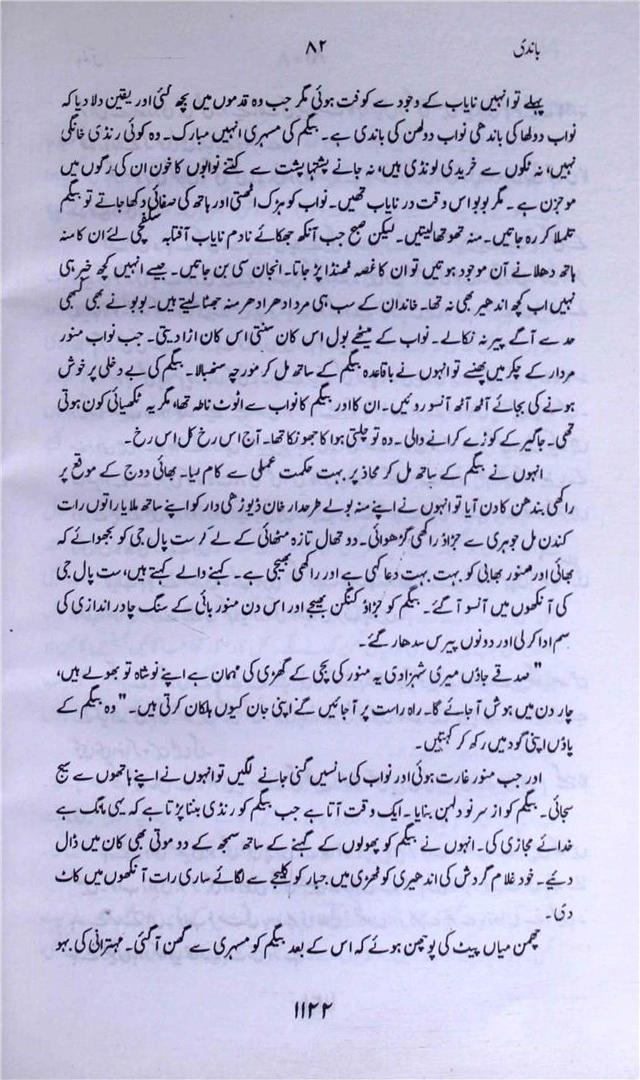 باندی ۸۲
پہلے تو انہیں نایاب کے وجود سے کوفت ہوئی مگر جب وہ قدموں میں بچھ گئی اور یقین دلا دیا کہ
نواب دولھا کی باندھی نواب دولھن کی باندی ہے۔ بیگم کی مسہری انہیں مبارک۔ وہ کوئی رنڈی خانگی
نہیں، نہ ٹکوں سے خریدی لونڈی ہیں، نہ جانے پشتہا پشت سے کتنے نوابوں کا خون ان کی رگوں میں
موجزن ہے۔ مگر بوبو اس وقت در نایاب تھیں۔ نواب کو ہڑک اٹھتی اور ہاتھ کی صفائی دکھا جاتے تو بیگم
تلملا کر رہ جاتیں۔ منہ تھوتھا لیتیں۔ لیکن صبح جب آنکھ جھکائے نادم نایاب آفتابہ سلفچی لئے ان کا منہ
ہاتھ دھلانے آن موجود ہوتیں تو ان کا غصہ ٹھنڈا پڑ جاتا۔ انجان سی بن جاتیں۔ جیسے انہیں کچھ خبر ہی
نہیں اب کچھ اندھیر بھی نہ تھا۔ خاندان کے سب ہی مرد ادھر ادھر منہ جھٹا لیتے ہیں۔ بوبو نے بھی کبھی
حد سے آگے پیر نہ نکالے۔ نواب کے میٹھے بول اس کان سنتی اس کان اڑا دیتی۔ جب نواب منور
مردار کے چکر میں پھنسے تو انہوں نے باقاعدہ بیگم کے ساتھ مل کر مورچہ سنبھالا۔ بیگم کی بے دخلی پر خوش
ہونے کی بجائے آٹھ آٹھ آنسو روئیں۔ ان کا اور بیگم کا نواب سے اٹوٹ ناطہ تھا، مگر یہ نکھیائی کون ہوتی
تھی۔ جاگیر کے کوڑے کرانے والی۔ وہ تو چلتی ہوا کا جھونکا تھا۔ آج اس رخ کل اس رخ۔
انہوں نے بیگم کے ساتھ مل کر محاذ پر بہت حکمت عملی سے کام لیا۔ بھائی دوج کے موقع پر
راکھی بندھن کا دن آیا تو انہوں نے اپنے منہ بولے طرحدار خان ڈیوڑھی دار کو اپنے ساتھ ملایا راتوں رات
کندن مل جوہری سے جڑاؤ راکھی گڑھوائی۔ دو تھال تازہ مٹھائی کے لے کر ست پال جی کو بجھوائے کہ
بھائی اور منور بھابی کو بہت بہت دعا کہی ہے اور راکھی بھیجی ہے۔ کہنے والے کہتے ہیں، ست پال جی
کی آنکھوں میں آنسو آ گئے۔ بیگم کو جڑاؤ کنگن بھیجے اور اس دن منور بائی کے سنگ چادر اندازی کی
سم ادا کر لی اور دونوں پیرس سدھار گئے۔
"صدقے جاؤں میری شہزادی یہ منور کی بچی کے گھڑی کی مہمان ہے اپنے نوشاہ تو بھولے ہیں،
چار دن میں ہوش آ جائے گا۔ راہ راست پر آ جائیں گے اپنی جان کیوں ہلکان کرتی ہیں۔" وہ بیگم کے
پاؤں اپنی گود میں رکھ کر کہتیں۔
اور جب منور غارت ہوئی اور نواب کی سانسیں گنی جانے لگیں تو انہوں نے اپنے ہاتھوں سے سیج
سجائی۔ بیگم کو از سر نو دلہن بنایا۔ ایک وقت آتا ہے جب بیگم کو رنڈی بننا پڑتا ہے کہ یہی مانگ ہے
خدائے مجازی کی۔ انہوں نے بیگم کو پھولوں کے گہنے کے ساتھ سمجھ کے دو موتی بھی کان میں ڈال
دئیے۔ خود غلام گردش کی اندھیری کوٹھری میں جبار کو کلیجے سے لگائے ساری رات آنکھوں میں کاٹ
دی۔
چھمن میاں پیٹ کی پونچھن ہوئے کہ اس کے بعد بیگم کو مسہری سے گھن آ گئی۔ مہترانی کی بہو
۱۱۲۲